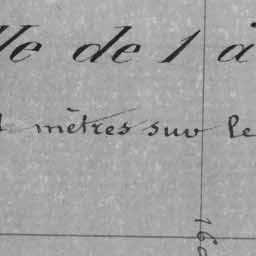 lle de 1 à
mètres sur le
160